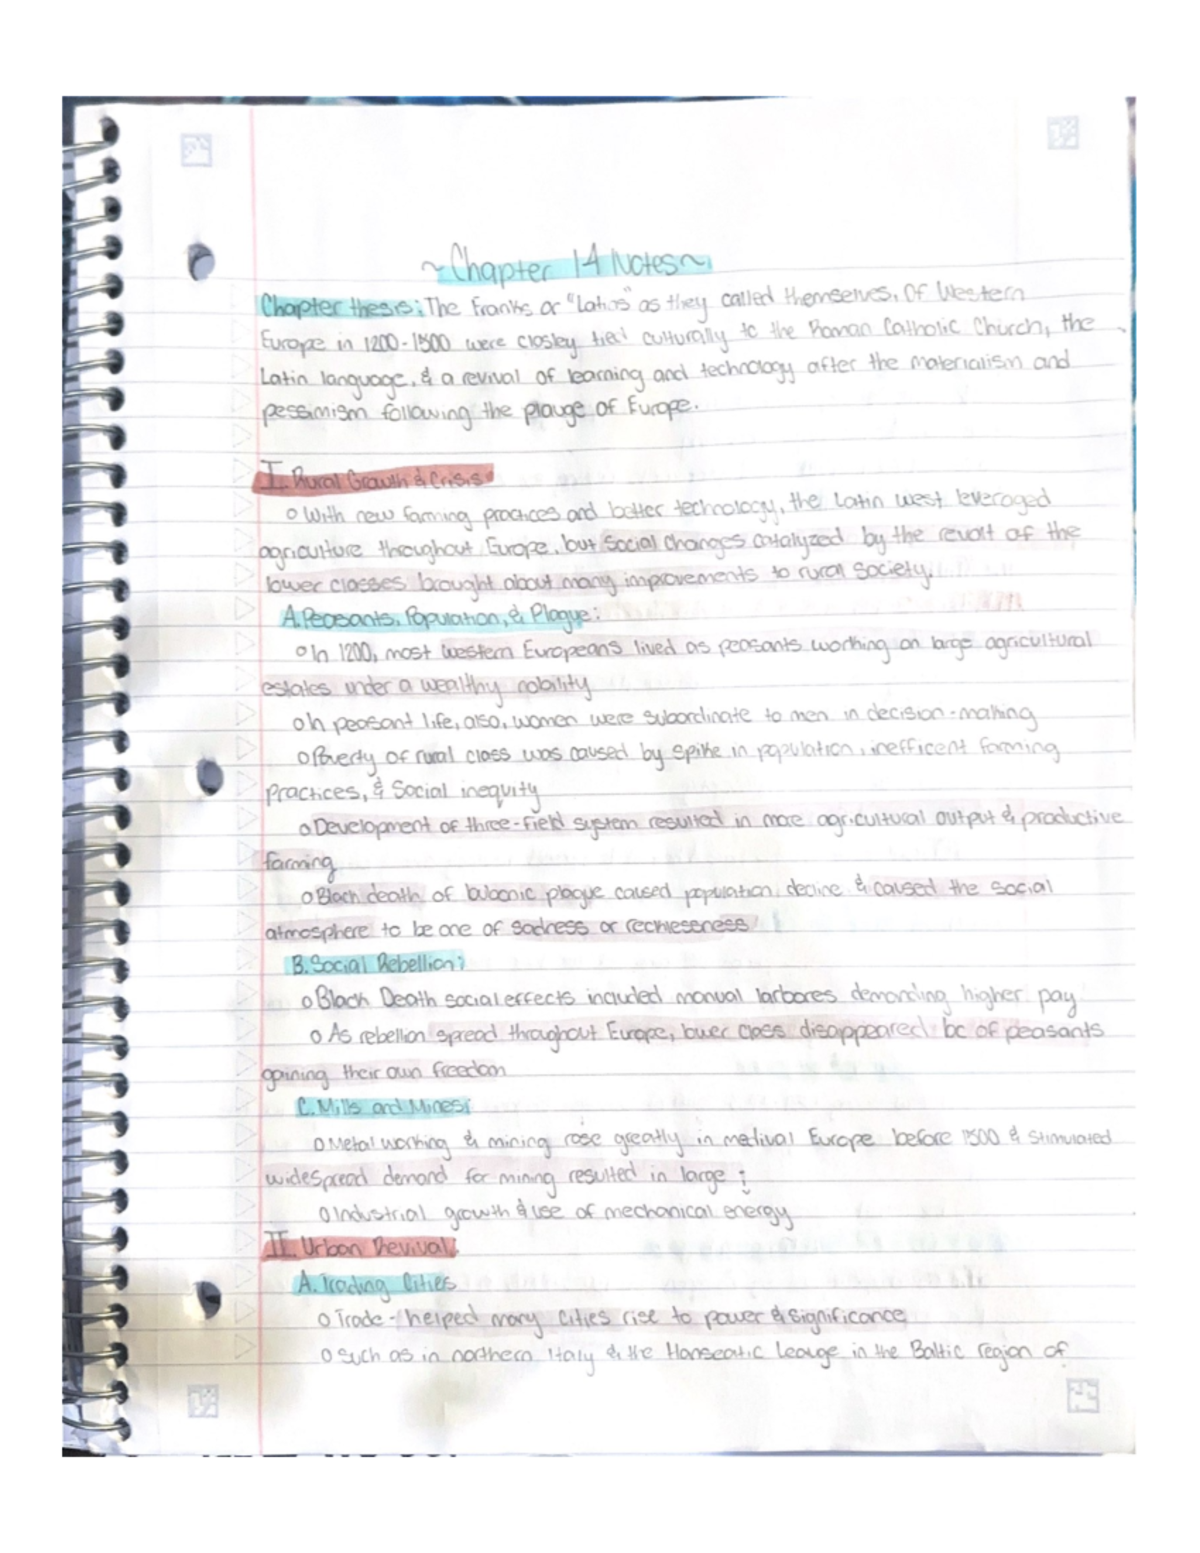 ~Chapter 14 Notes~
Chapter thesis: The Franks or "Latins" as they called themselves, Of Western
Europe in 1200-1500 were closley tied culturally to the Roman Catholic Church, the
Latin language, & a revival of learning and technology after the materialism and
pessimism following the plauge of Europe.
I. Rural Growth & Crisis
o With new farming practices and better technology, the Latin west leveraged
agriculture throughout Europe, but Social changes catalyzed by the revolt of the
lower classes brought about many improvements to rural society.
A. Peasants, Population, & Plague:
o In 1200, most western Europeans lived as peasants working on large agricultural
estates under a wealthy nobility
o In peasant life, also, women were subordinate to men in decision-making
o Poverty of rural class was caused by spike in population, inefficent farming
Practices, & Social inequity
o Development of three-field system resulted in more agricultural output & productive
farming
o Black death of bubonic plague caused population decline & caused the social
atmosphere to be one of sadness or recklessness
B. Social Rebellion:
o Black Death social effects included manual larbores demanding higher pay
o As rebellion spread throughout Europe, lower class disappeared bc of peasants
gaining their own freedom
C. Mills and Mines:
o Metal working & mining rose greatly in medival Europe before 1500 & stimulated
widespread demand for mining resulted in large :
o Industrial growth & use of mechanical energy
II. Urban Revival:
A. Trading Cities
o Trade - helped many cities rise to power & significance
o Such as in northern Italy & the Hanseatic Leauge in the Baltic region of